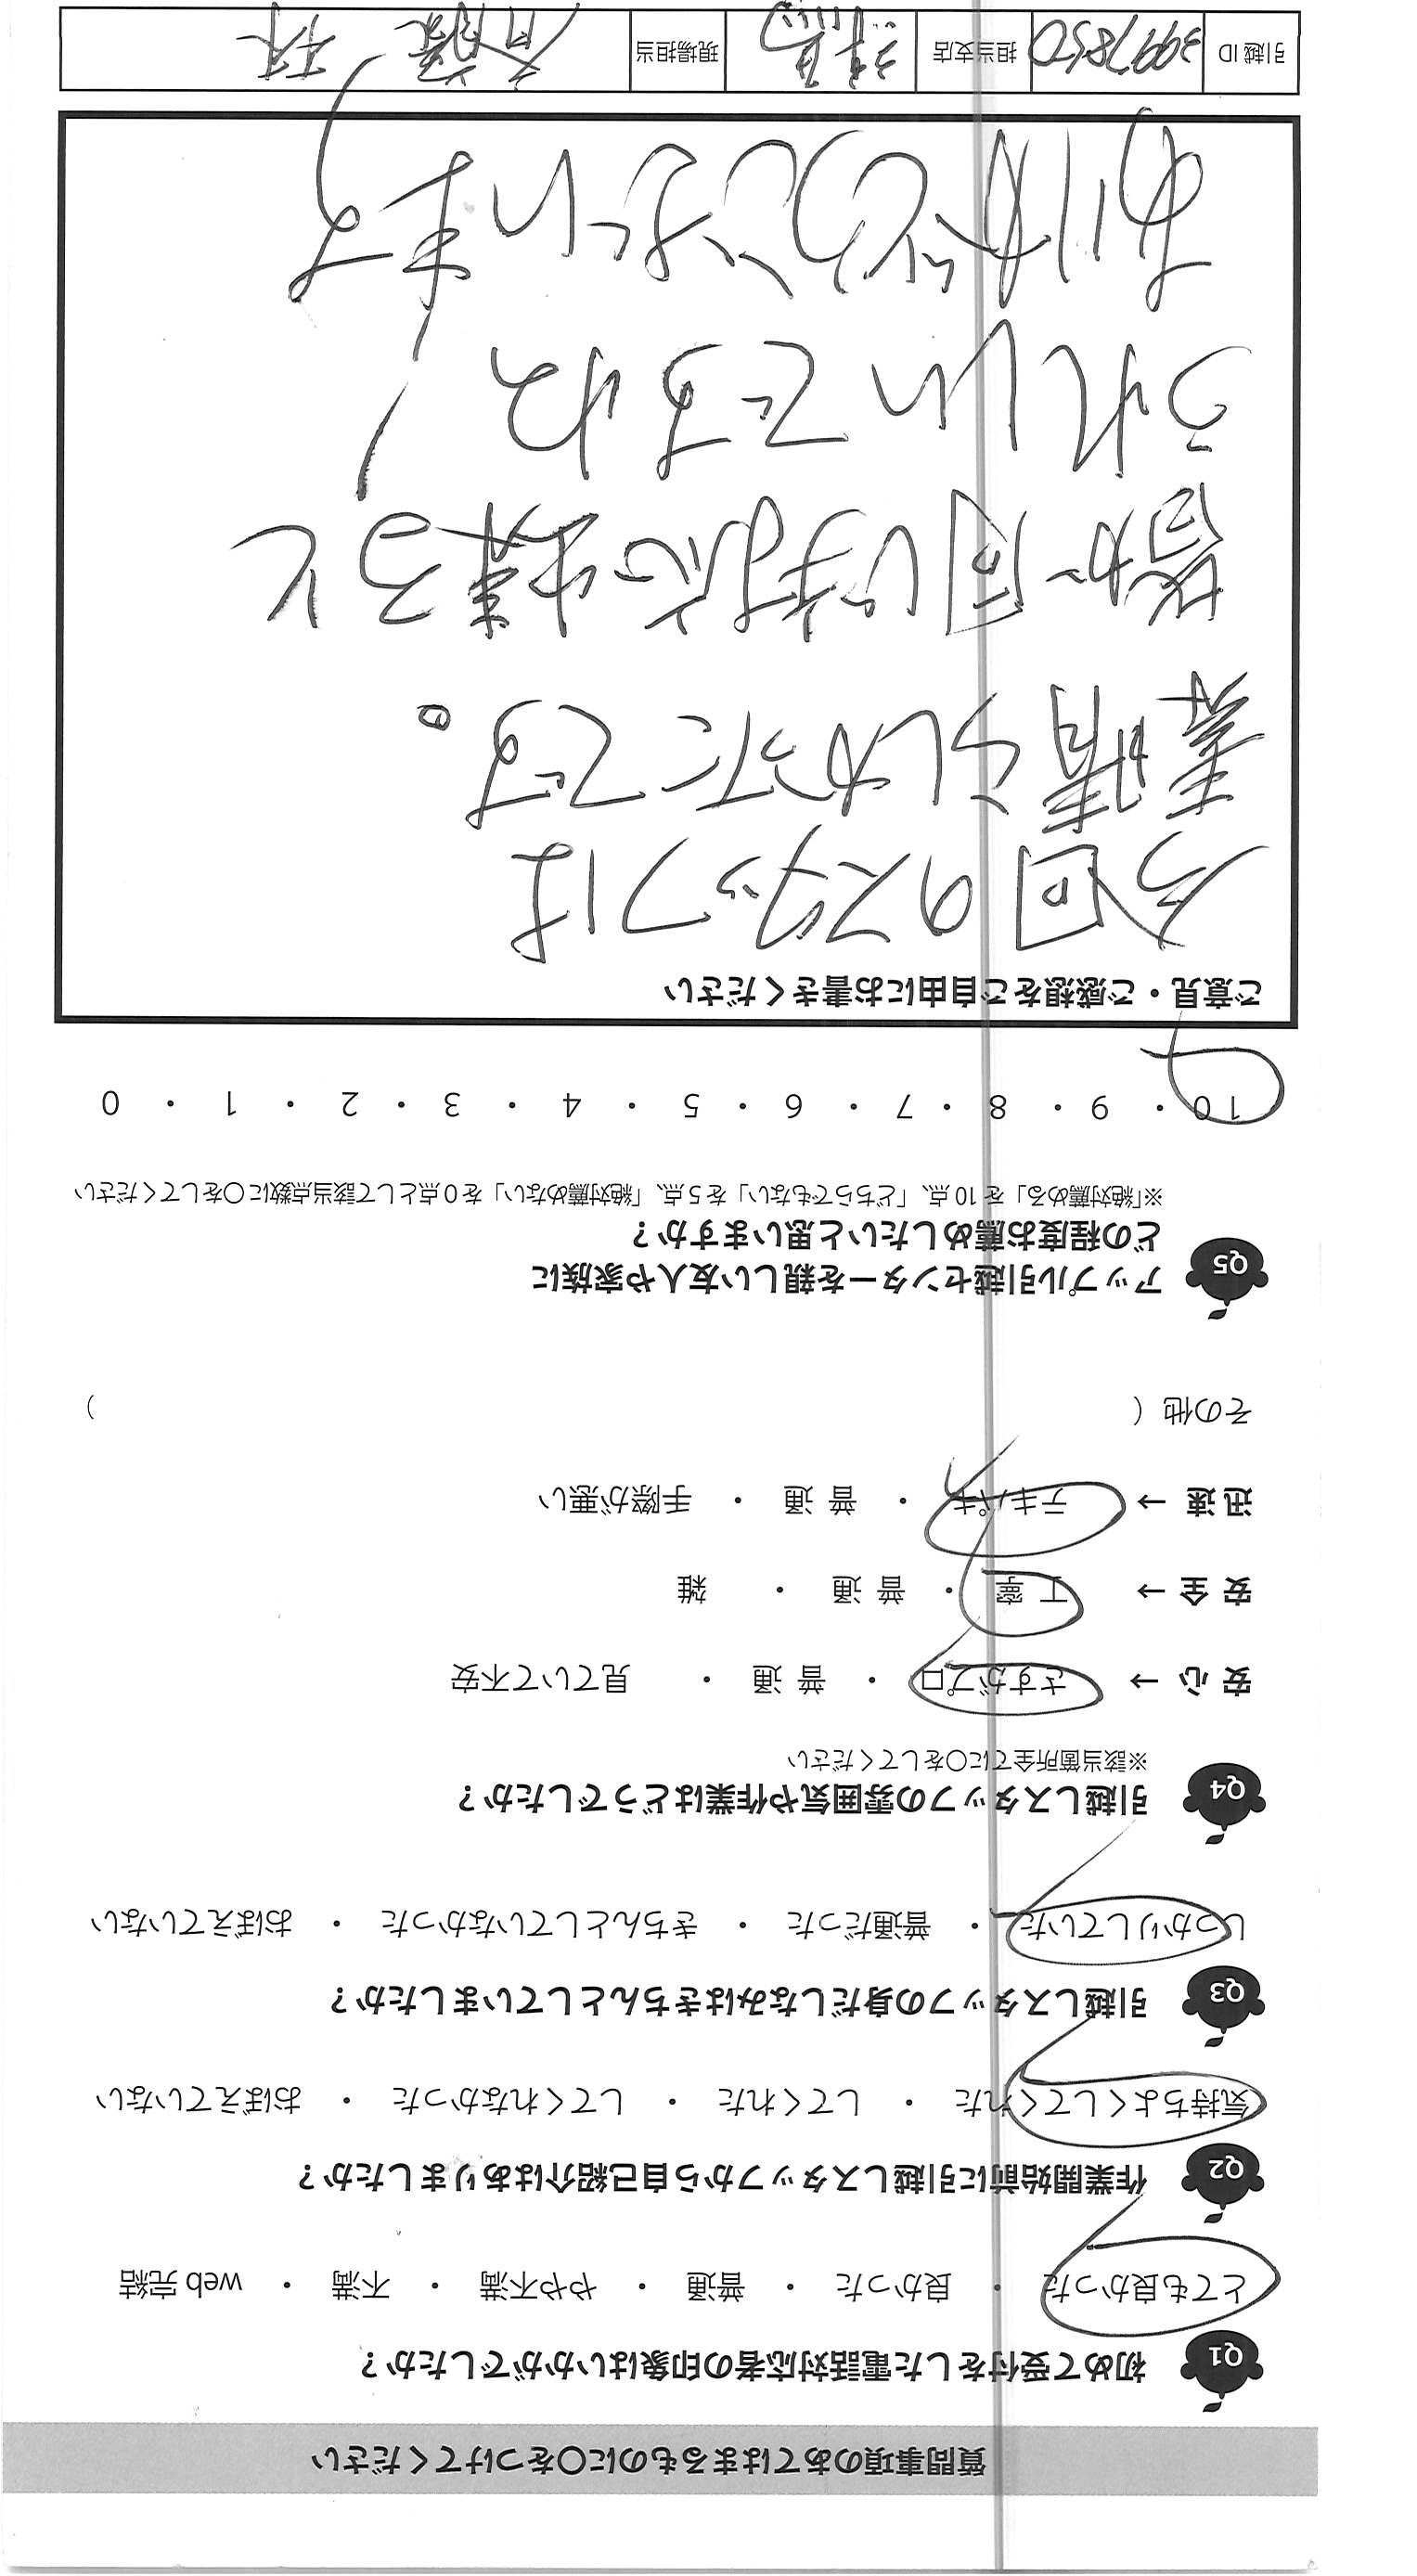 質問事項のあてはまるものに○をつけてください
Q1 初めて受付をした電話対応者の印象はいかがでしたか？
とても良かった ・ 良かった ・ 普通 ・ やや不満 ・ 不満 ・ web 完結
Q2 作業開始前に引越しスタッフから自己紹介はありましたか？
気持ちよくしてくれた ・ してくれた ・ してくれなかった ・ おぼえていない
Q3 引越しスタッフの身だしなみはきちんとしていましたか？
しっかりしていた ・ 普通だった ・ きちんとしていなかった ・ おぼえていない
Q4 引越しスタッフの雰囲気や作業はどうでしたか？
※該当箇所全てに○をしてください
安 心 → さすがプロ ・ 普 通 ・ 見ていて不安
安 全 → 丁 寧 ・ 普 通 ・ 雑
迅 速 → テキパキ ・ 普 通 ・ 手際が悪い
その他（ ）
Q5 アップル引越センターを親しい友人や家族に
どの程度お薦めしたいと思いますか？
※「絶対薦める」を 10 点、「どちらでもない」を 5 点、「絶対薦めない」を 0 点として該当点数に○をしてください
10 ・ 9 ・ 8 ・ 7 ・ 6 ・ 5 ・ 4 ・ 3 ・ 2 ・ 1 ・ 0
ご意見・ご感想をご自由にお書きください
今回のスタッフは
素晴らしかったです。
皆が同じ対応出来ると
うれしいですね！
ありがとうございます
引越 ID 3997850 担当支店 現場担当 斉藤 林